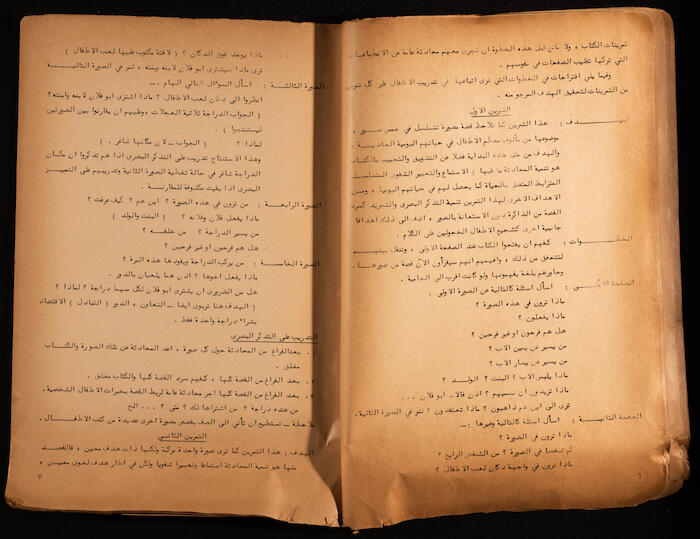 تمرينات الكتاب ، ولا مانع قبل هذه الخطوة ان تجرى معهم محادثة عامة عن الانطباعات
التي تركها تقليب الصفحات في نفوسهم .
وفيما يلي اقتراحات في الخطوات التي نرى اتباعها في تدريب الاطفال على كل تمرين
من التمرينات لتحقيق الهدف المرجو منه .
التمرين الاول
الهدف : هذا التمرين كما تلاحظ قصة مصورة تتسلسل في خمس صور ،
موضوعها من مألوف معالم الاطفال في حياتهم اليومية العادية .
والهدف من مثل هذه البداية فضلا عن التشويق والتحبيب بالكتاب
هو تنمية المحادثة بما فيها : الاستماع والتعبير الشفوى المتسلسل
المترابط المتعلق بالحياة كما يحصل لهم في حياتهم اليومية ، ومن
الاهداف الاخرى لهذا التمرين تنمية التذكر البصرى والتجريد كسرد
القصة من الذاكرة دون الاستعانة بالصور ، اضف الى ذلك اهدافا
جانبية اخرى كتشجيع الاطفال الخجولين على الكلام .
الخطوات : كلفهم ان يفتحوا الكتاب عند الصفحة الاولى ، وتنقل بينهم
لتتحقق من ذلك ، وافهمهم انهم سيقرأون الآن قصة من صورها .
وحاورهم بلغة يفهمونها ولو كانت اقرب الى العامية .
الصفحة الاولى : اسأل اسئلة كالتالية عن الصورة الاولى :
ماذا ترون في هذه الصورة ؟
ماذا يفعلون ؟
هل هم فرحون او غير فرحين ؟
من يسير عن يمين الاب ؟
من يسير عن يسار الاب ؟
ماذا يلبس الاب ؟ البنت ؟ الولد ؟
ماذا تريدون ان نسميهم ؟ اذن قالاب ابو فلان ...
ترى الى اين هم ذاهبون ؟ ماذا تعتقدون ؟ لنر في الصورة التالية .
الصفحة الثانية : اسأل اسئلة كالتالية وغيرها :ـ
ماذا ترون في الصورة ؟
كم شخصا في الصورة ؟ من الشخص الرابع ؟
ماذا ترون في واجهة دكان لعب الاطفال ؟
٦
ماذا يوجد فوق الدكان ؟ ( لافتة مكتوب عليها لعب الاطفال )
ترى ماذا سيشترى ابو فلان لابنه وبنته ، لنر في الصورة التالية
الصورة الثالثة : اسأل السوال التالي الهام :ـ
انظروا الى دكان لعب الاطفال ؟ ماذا اشترى ابو فلان لابنه وابنته ؟
( الجواب الدراجة ثلاثية العجلات ، وعليهم ان يقارنوا بين الصورتين
ليستنتجوا ) .
لماذا ؟ ( الجواب ــ لان مكانها شاغر . )
وهذا الاستنتاج تدريب على التذكر البصرى اذا هم تذكروا ان مكان
الدراجة شاغر في حالة تغطية الصورة الثانية وتدريبهم على التمييز
البصرى اذا بقيت مكشوفة للمقارنة .
الصورة الرابعة : من ترون في هذه الصورة ؟ اين هم ؟ كيف عرفت ؟
ماذا يفعل فلان وفلانه ؟ ( البنت والولد )
من يسير الدراجة ؟ من خلفه ؟
هل هم فرحون او غير فرحين ؟
الصورة الخامسة : من يركب الدراجة ويقودها هذه المرة ؟
ماذا يفعل اخوها ؟ اذن هما يلعبان بالدور .
هل من الضرورى ان يشترى ابو فلان لكل منهما دراجة ؟ لماذا ؟
( الهدف هنا تربوى ايضا ــ التعاون ، الدور ( التبادل ) الاقتصاد
بشراء دراجة واحدة فقط .
التدريب على التذكر البصرى
١ . بعد الفراغ من المحادثة حول كل صورة ، اعد المحادثة عن تلك الصورة والكتاب
مغلق .
٢ . بعد الفراغ من القصة كلها ، كلفهم سرد القصة كلها والكتاب مغلق .
٣ . بعد الفراغ من القصة كلها اجر محادثة عامة لربط القصة بخبرات الاطفال الشخصية .
من عنده دراجة ؟ من اشتراها لك ؟ متى ؟ ... الخ
ملاحظة ــ تستطيع ان تأتي الى الصف بقصص مصورة اخرى عديدة من كتب الاطفال .
التمرين الثاني
الهدف : هذا التمرين كما ترى صورة واحدة مركبة ولكنها ذات هدف معين ، فالقصد
منها هو تنمية المحادثة استماعا وتعبيرا شفويا ولكن في اطار هدف لغوى معين ،
٧